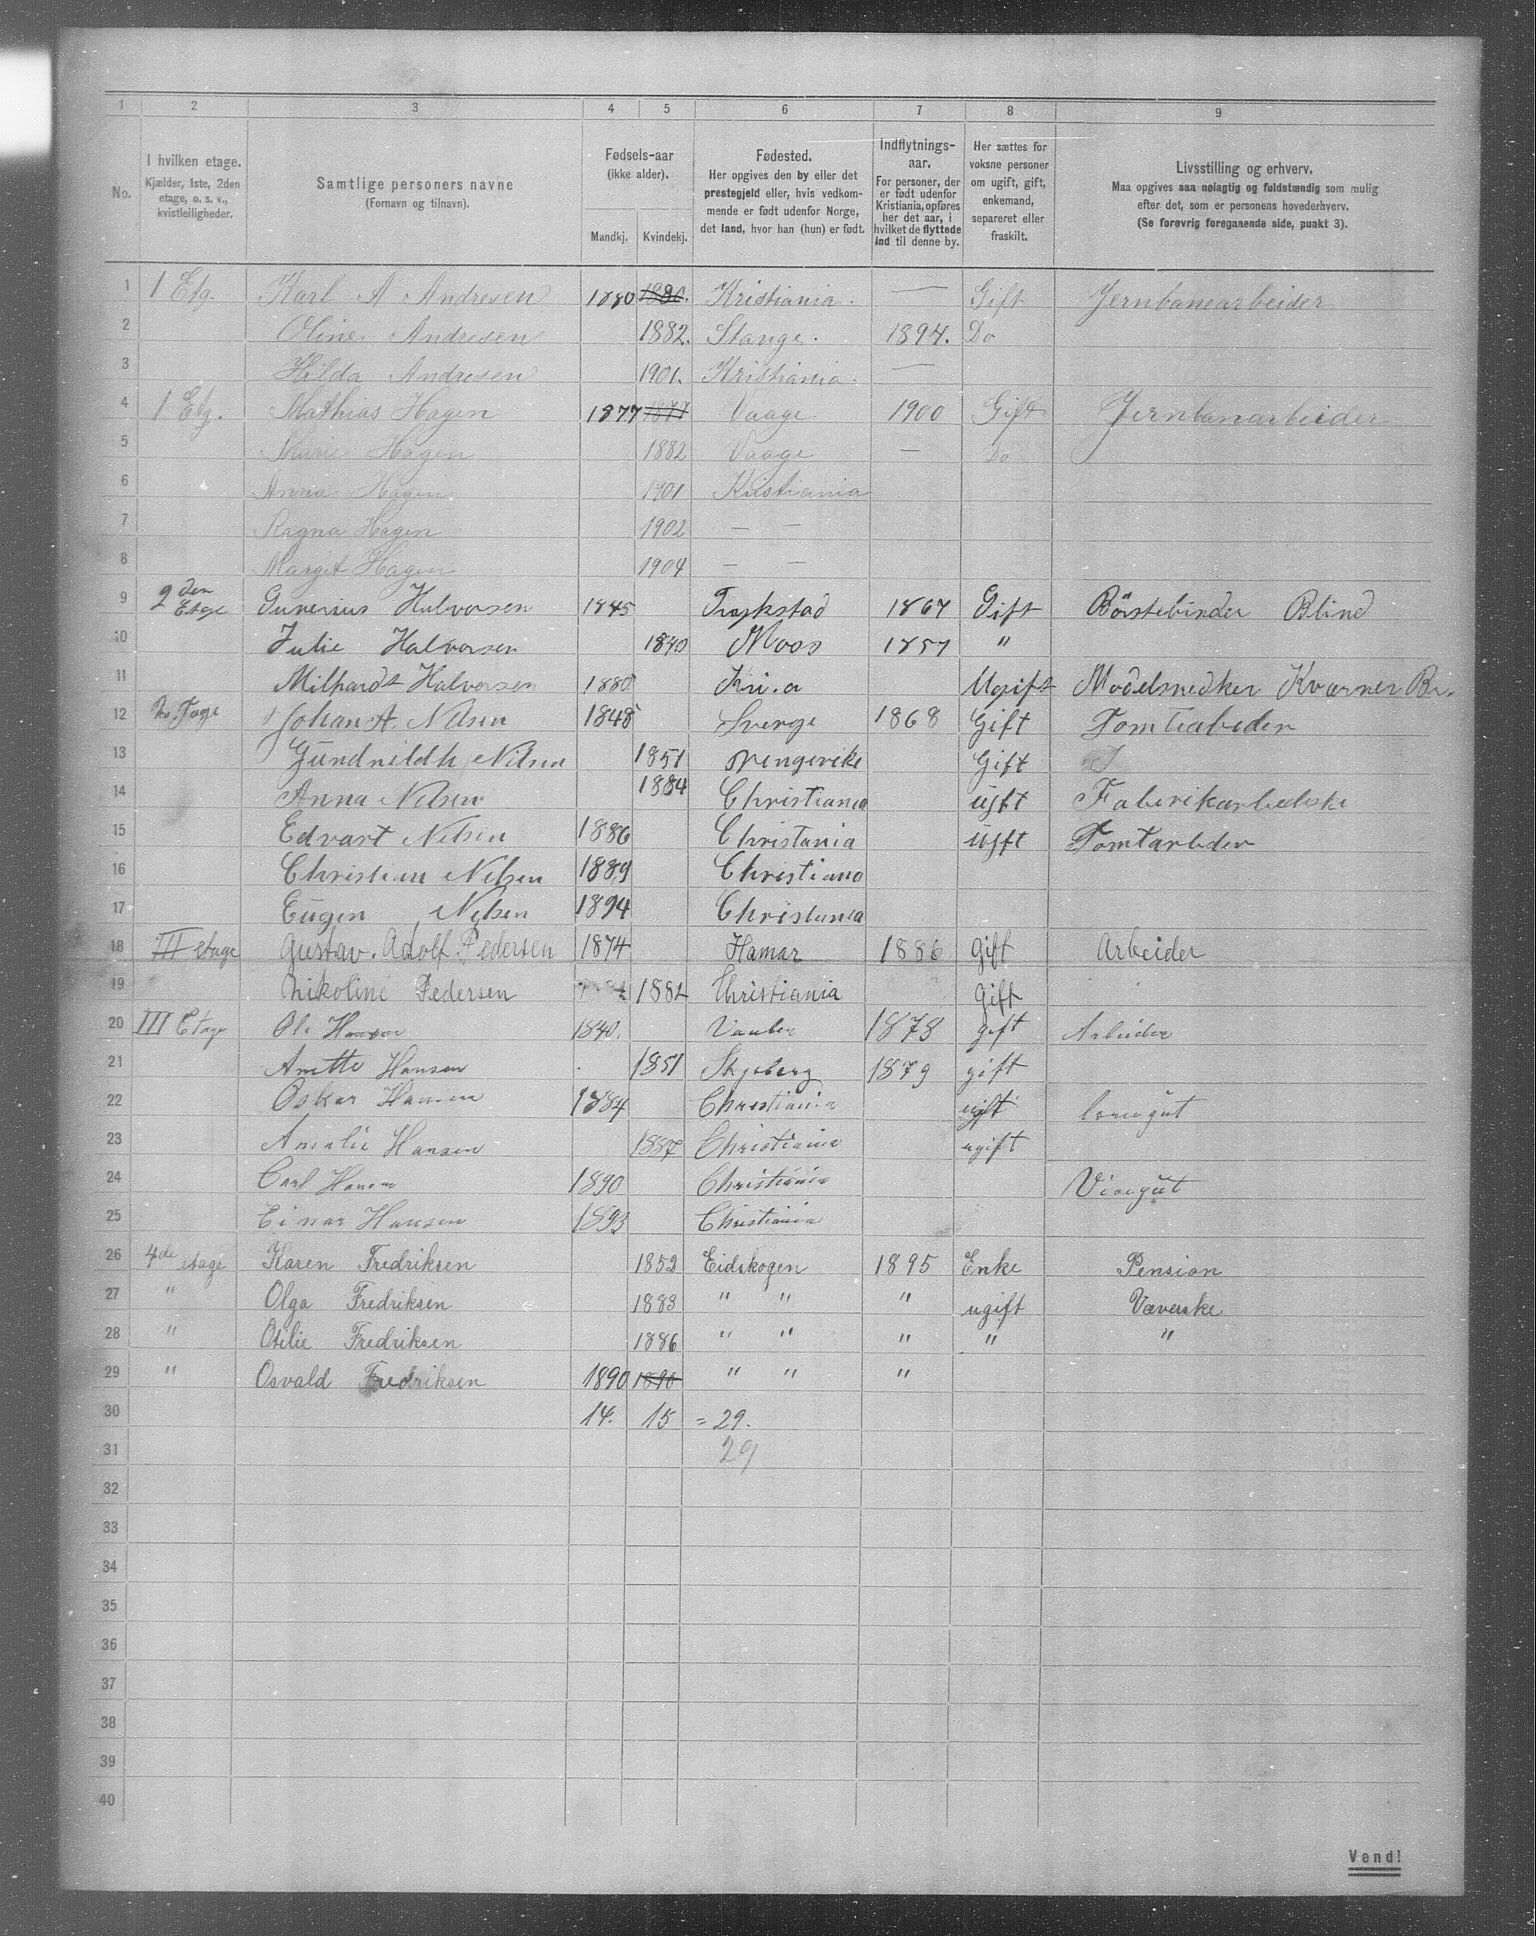 1 2 3 4 5 6 7 8 9
No.
I hvilken etage.
Kjælder, 1ste, 2den
etage, o. s. v.,
kvistleiligheder.
Samtlige personers navne
(Fornavn og tilnavn).
Fødsels-aar
(ikke alder).
Mandkj. Kvindekj.
Fødested.
Her opgives den by eller det
prestegjeld eller, hvis vedkom-
mende er født udenfor Norge,
det land, hvor han (hun) er født.
Indflytnings-
aar.
For personer, der
er født udenfor
Kristiania, opføres
her det aar, i
hvilket de flyttede
ind til denne by.
Her sættes for
voksne personer
om ugift, gift,
enkemand,
separeret eller
fraskilt.
Livsstilling og erhverv.
Maa opgives saa nøiagtig og fuldstændig som mulig
efter det, som er personens hovederhverv.
(Se forøvrig foregaaende side, punkt 3).
1 1 Etg. Karl A Andresen 1880 1880. Kristiania. — Gift Jernbanearbeider
2 Oline Andresen 1882. Stange. 1894. Do
3 Hilda Andresen 1901. Kristiania. —
4 1 Etg. Mathias Hagen 1877 1877 Vaage 1900 Gift Jernbanarbeider
5 Marie Hagen 1882 Vaage — Do
6 Anna Hagen 1901 Kristiania
7 Ragna Hagen 1902 — —
8 Margit Hagen 1904 — —
9 2 den Etage Halvorsen 1845 Trykstad 1867 Gift Börstebinder Blind
10 Julie Halvorsen 1840 Moss 1857 "
11 Halvorsen 1880 Kri.a Ugift Modelsnedker Kværner Br.
12 Johan A. Nilsen 1848 Sverge 1868 Gift Tomtearbeder
13 Gundnildh Nilsen 1851 Gift
14 Anna Nilsen 1884 Christiania ugft Faberikarbedske
15 Edvart Nilsen 1886 Christania ugft Tomtarbeder
16 Christian Nilsen 1889 Christiana
17 Eugen Nilsen 1894 Christania
18 III etage Gustav. Adolf Pedersen 1874 Hamar 1886 gift Arbeider
19 Nikoline Pedersen 1882 Christiania Gift
20 III Etage Ole Hansen 1840. 1878 gift Arbeider
21 Anette Hansen 1851 Skjeberg 1879 gift
22 Oskar Hansen 1884 Christiania ugift
23 Amalie Hansen 1887 Christiania ugift
24 Carl Hansen 1890 Christiania Visegut
25 Einar Hansen 1893 Christiania
26 4de etage Karen Fredriksen 1852 Eidskogen 1895 Enke Pension
27 " Olga Fredriksen 1883 " " " ugift Væverske
28 " Otilie Fredriksen 1886 " " " " "
29 " Osvald Fredriksen 1890 1890 " " "
30 14. 15 = 29.
31 29
32
33
34
35
36
37
38
39
40
Vend!